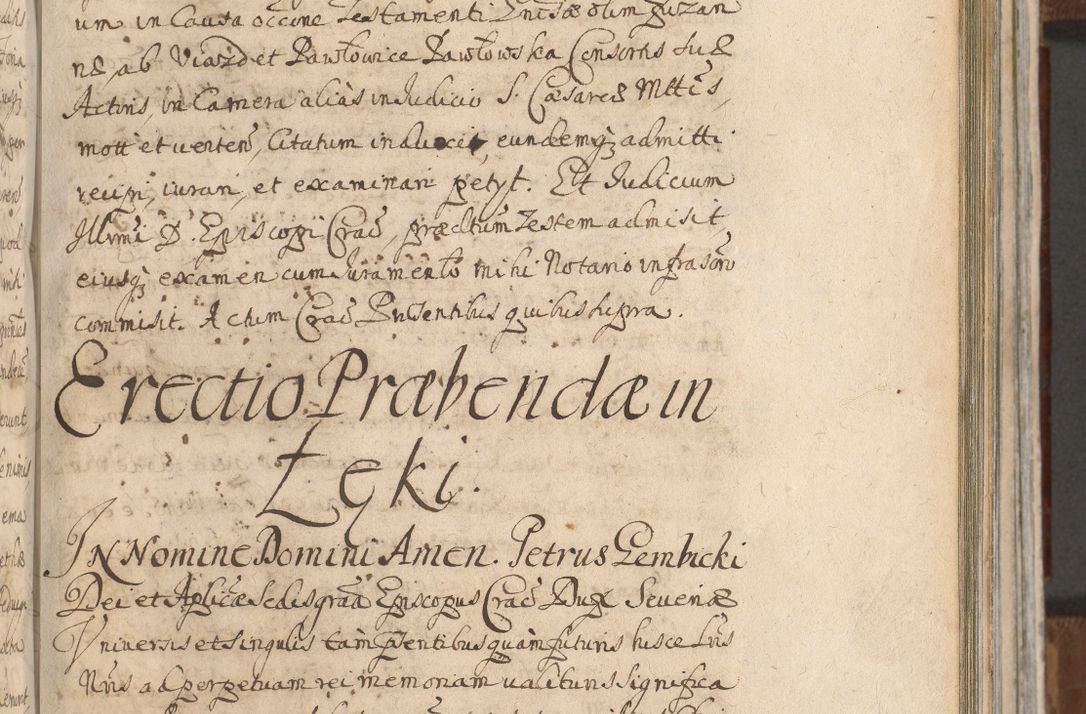 um in Causa occõne Testamenti Gnisæ olim Zuzan
næ, ab Viazd et Pawłowice Pawłowska Consortis suæ
Actoris, in Camera alias in Judicio S. Cæsareæ Mttis,
mott et verten, Citatum induxit, eundemqz admitti
recipi, iurari, et examinari petyt. Et Judicium
Illmi D. Episcopi Crac, prædictum Testem admisit,
eiusqz examen cum Juramento mihi Notario infrascro
commisit. Actum Crac Pntentibus quibus supra.
Erectio Præbendæ in
Łęki.
IN Nomine Domini Amen. Petrus Gembicki
Dei et Aplicæ Sedis graa Episcopus Crac Dux Severiæ
Universis et singulis tam pntentibus quam futuris hisce Lris
Nris ad perpetuam rei memoriam valituris significa